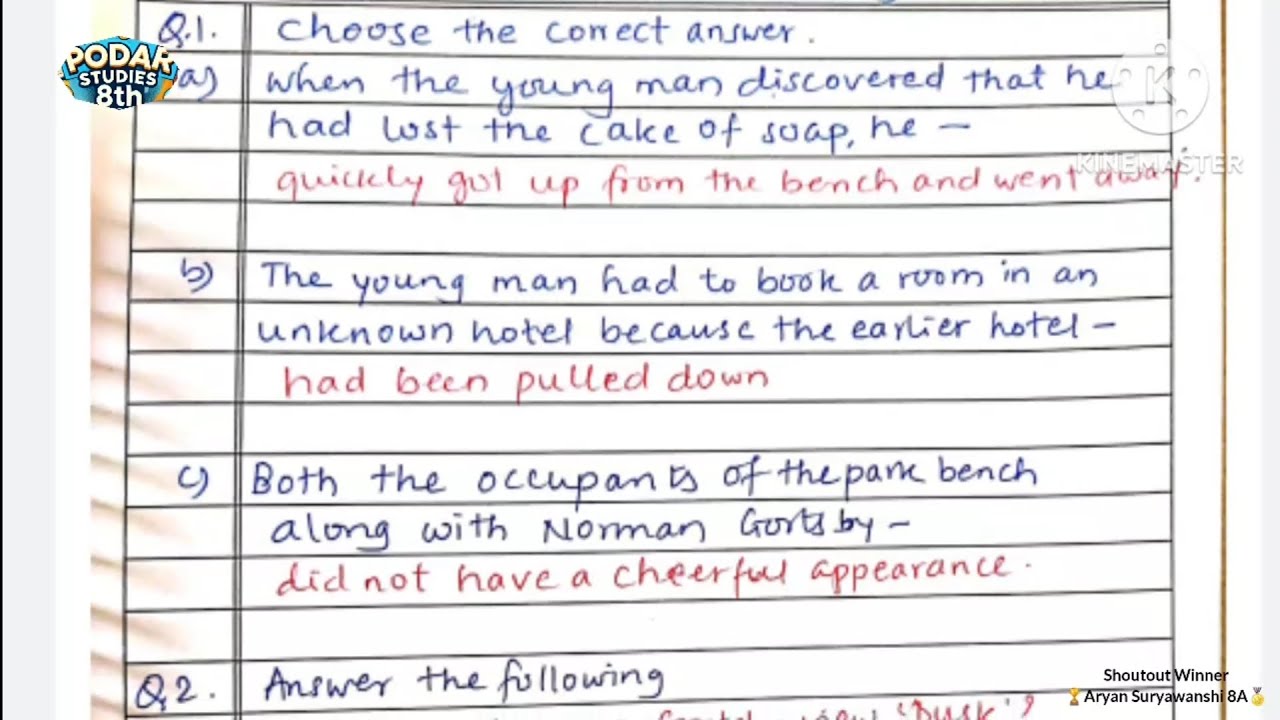 Q.1. Choose the correct answer.
PODAR
STUDIES
8th
a) When the young man discovered that he
had lost the cake of soap, he –
KINEMASTER
quickly got up from the bench and went away.
b) The young man had to book a room in an
unknown hotel because the earlier hotel –
had been pulled down
c) Both the occupants of the park bench
along with Norman Gortsby –
did not have a cheerful appearance.
Q.2. Answer the following
Shoutout Winner
🏆Aryan Suryawanshi 8A🏅
'Dusk'?